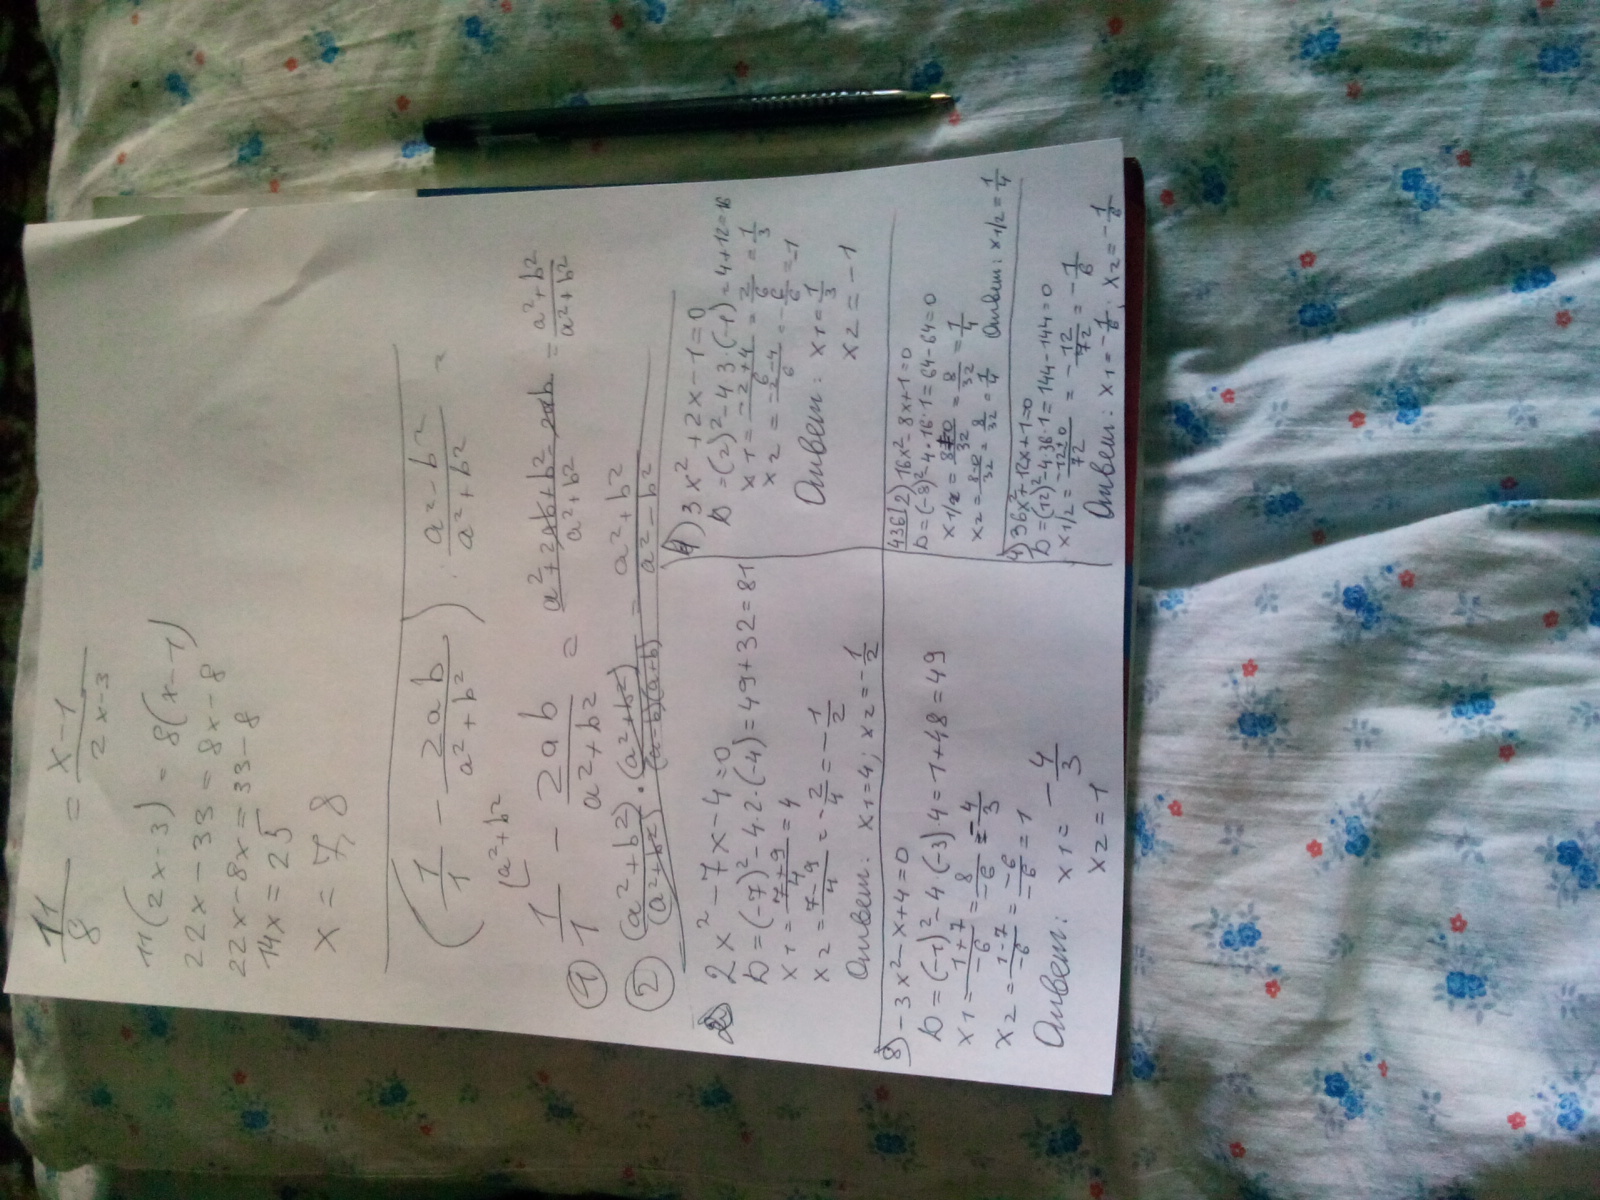 11/8 = x-1/2x-3
11(2x-3) = 8(x-1)
22x-33 = 8x-8
22x-8x = 33-8
14x = 25
x = 7,8
(1/1 - 2ab/a²+b²) : a²-b²/a²+b² =
(a²+b²
① 1/1 - 2ab/a²+b² = a²+2ab+b²-2ab/a²+b² = a²+b²/a²+b²
② (a²+b2)/(a²+b2) · (a²+b²)/(a-b)(a+b) = a²+b²/a²-b²
2) 2x²-7x-4=0
D=(-7)²-4·2·(-4)=49+32=81
x1=7+9/4=4
x2=7-9/4=-2/4=-1/2
Ответ: x1=4; x2=-1/2
4) 3x²+2x-1=0
D=(2)²-4·3·(-1)=4+12=16
x1=-2+4/6=2/6=1/3
x2=-2-4/6=-6/6=-1
Ответ: x1=1/3
x2=-1
8) -3x²-x+4=0
D=(-1)²-4(-3)4=1+48=49
x1=1+7/-6=8/-6=-4/3
x2=1-7/-6=-6/-6=1
Ответ: x1=-4/3
x2=1
436(2) 16x²-8x+1=0
D=(-8)²-4·16·1=64-64=0
x1/2=8+0/32=8/32=1/4
x2=8-0/32=8/32=1/4 Ответ: x1/2=1/4
4) 36x²+12x+1=0
D=(12)²-4·36·1=144-144=0
x1/2=-12±0/72=-12/72=-1/6
Ответ: x1=-1/6; x2=-1/6